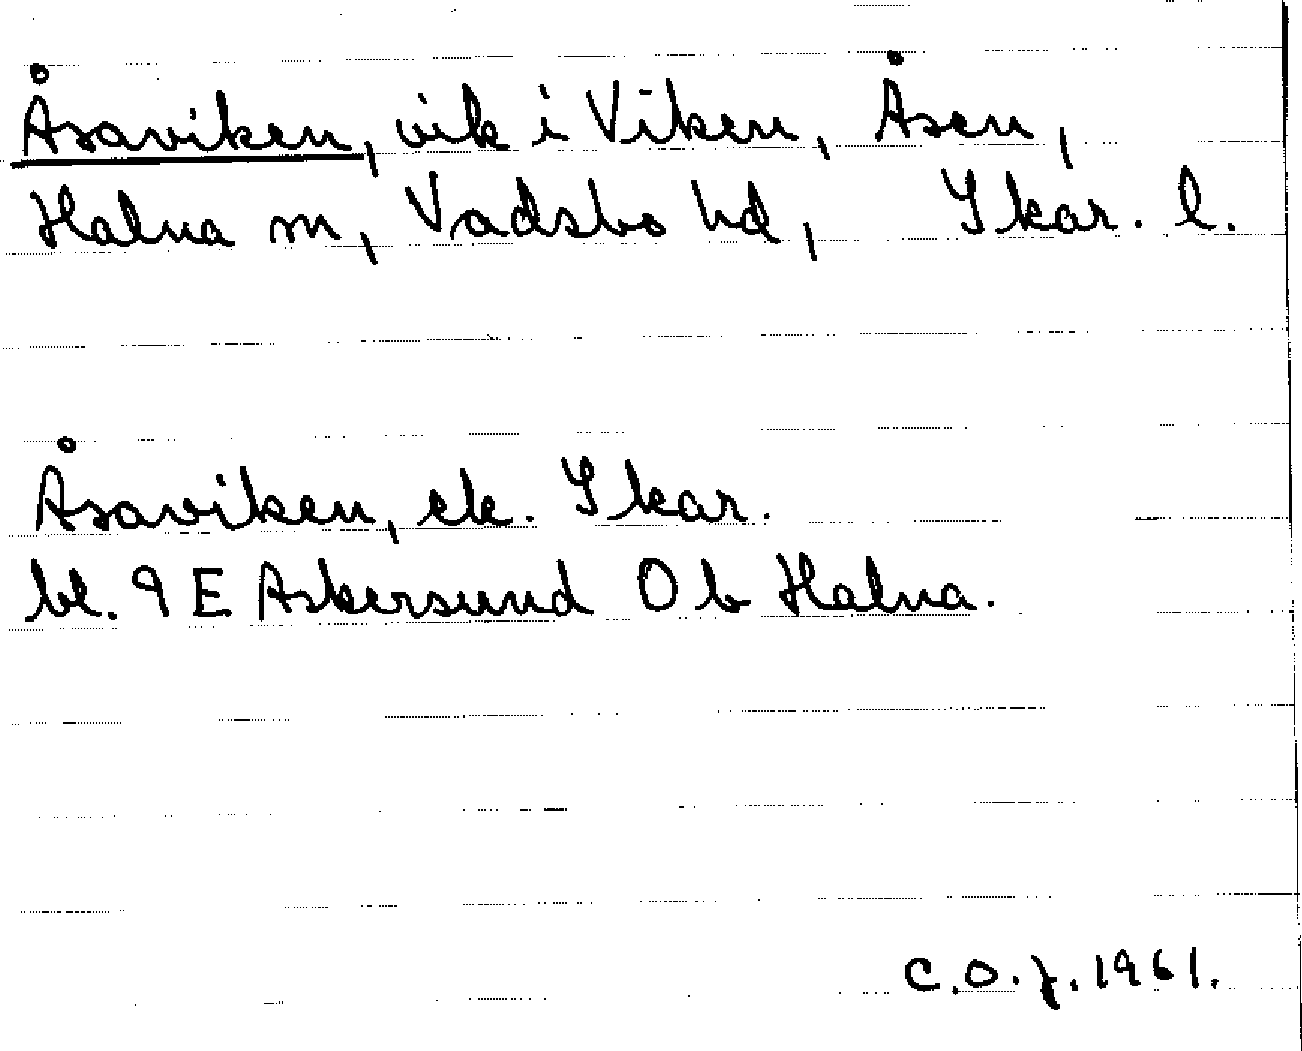 Åsaviken, vik i Viken, Åsen,
Halna sn, Vadsbo hd, Skar. l.
Åsaviken, ek. Skar.
bl. 9 E Askersund 0 b Halna.
C.O.J. 1961.